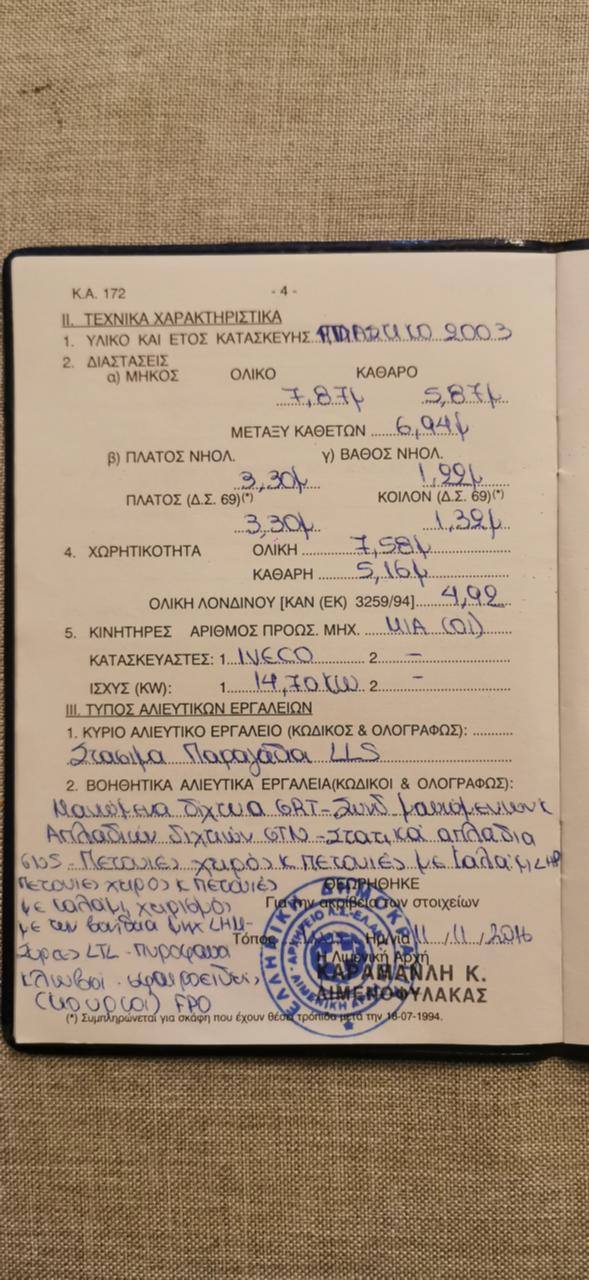 Κ.Α. 172 - 4 -
ΙΙ. ΤΕΧΝΙΚΑ ΧΑΡΑΚΤΗΡΙΣΤΙΚΑ
1. ΥΛΙΚΟ ΚΑΙ ΕΤΟΣ ΚΑΤΑΣΚΕΥΗΣ ΠΛΑΣΤΙΚΟ 2003
2. ΔΙΑΣΤΑΣΕΙΣ
α) ΜΗΚΟΣ ΟΛΙΚΟ ΚΑΘΑΡΟ
7,87μ 5,87μ
ΜΕΤΑΞΥ ΚΑΘΕΤΩΝ 6,94μ
β) ΠΛΑΤΟΣ ΝΗΟΛ. γ) ΒΑΘΟΣ ΝΗΟΛ.
3,30μ 1,22μ
ΠΛΑΤΟΣ (Δ.Σ. 69)(*) ΚΟΙΛΟΝ (Δ.Σ. 69)(*)
3,30μ 1,32μ
4. ΧΩΡΗΤΙΚΟΤΗΤΑ ΟΛΙΚΗ 7,58μ
ΚΑΘΑΡΗ 5,16μ
ΟΛΙΚΗ ΛΟΝΔΙΝΟΥ [ΚΑΝ (ΕΚ) 3259/94] 4,92
5. ΚΙΝΗΤΗΡΕΣ ΑΡΙΘΜΟΣ ΠΡΟΩΣ. ΜΗΧ. ΜΙΑ (01)
ΚΑΤΑΣΚΕΥΑΣΤΕΣ: 1. IVECO 2 -
ΙΣΧΥΣ (KW): 1. 14,70 KW 2 -
ΙΙΙ. ΤΥΠΟΣ ΑΛΙΕΥΤΙΚΩΝ ΕΡΓΑΛΕΙΩΝ
1. ΚΥΡΙΟ ΑΛΙΕΥΤΙΚΟ ΕΡΓΑΛΕΙΟ (ΚΩΔΙΚΟΣ & ΟΛΟΓΡΑΦΩΣ):
Στάσιμα Παραγάδια LLS
2. ΒΟΗΘΗΤΙΚΑ ΑΛΙΕΥΤΙΚΑ ΕΡΓΑΛΕΙΑ(ΚΩΔΙΚΟΙ & ΟΛΟΓΡΑΦΩΣ):
Μανωμενα δίχτυα GRT- Συνδ μανωμενων κ
Απλαδιων διχτιών GTN - Στατικά απλαδια
GNS - Πετονιες χειρός κ πετονιές με καλάμι LHP
πετονιες χειρός κ πετονιές
με καλάμι χειρισμός
με την βοηθεια μηχ LHM-
Συρτες LTL - Πυροφανια
κλωβοι
(κιουρτοι) FPO
ΘΕΩΡΗΘΗΚΕ
Για την ακρίβεια των στοιχείων
Τόπος Ημ/νία 11 / 11 / 2016
Η Λιμενική Αρχή
ΚΑΡΑΜΑΝΛΗ Κ.
ΛΙΜΕΝΟΦΥΛΑΚΑΣ
ΕΛΛΗΝΙΚΗ ΔΗΜΟΚΡΑΤΙΑ
(*) Συμπληρώνεται για σκάφη που έχουν θέσει τρόπιδα μετά την 18-07-1994.